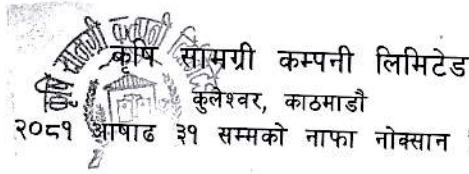 कृषि सामग्री कम्पनी लिमिटेड
कुलेश्वर, काठमाडौ
२०८१ आषाढ ३१ सम्मको नाफा नोक्सान